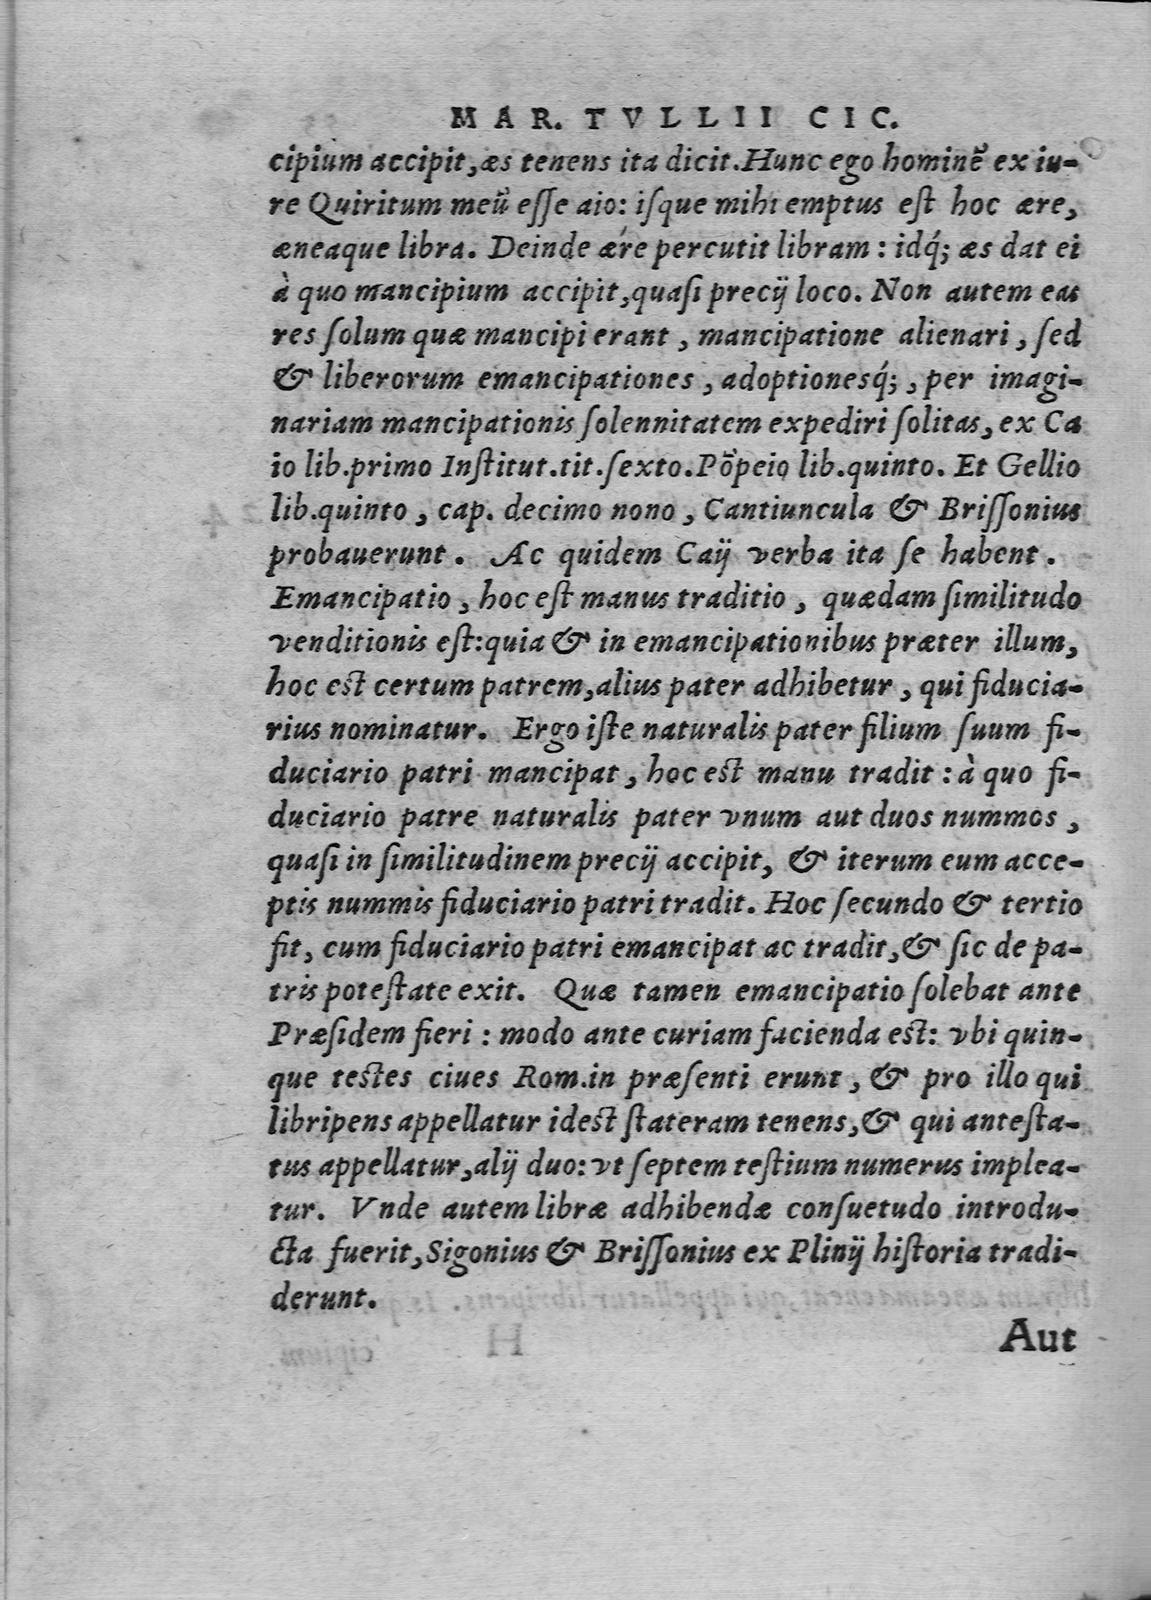 MAR. TVLLII CIC.
cipium accipit, æs tenens ita dicit. Hunc ego hominẽ ex iu-
re Quiritum meũ eſſe aio: iſque mihi emptus eſt hoc ære,
æneaque libra. Deinde ære percutit libram : idq́; æs dat ei
à quo mancipium accipit, quaſi precij loco. Non autem eas
res ſolum quæ mancipi erant, mancipatione alienari, ſed
& liberorum emancipationes, adoptionesq́;, per imagi-
nariam mancipationis ſolennitatem expediri ſolitas, ex Ca
io lib. primo Inſtitut. tit. ſexto. Põpeio lib. quinto. Et Gellio
lib. quinto, cap. decimo nono, Cantiuncula & Briſſonius
probauerunt. Ac quidem Caij verba ita ſe habent.
Emancipatio, hoc eſt manus traditio, quædam ſimilitudo
venditionis eſt: quia & in emancipationibus præter illum,
hoc eſt certum patrem, alius pater adhibetur, qui fiducia-
rius nominatur. Ergo iſte naturalis pater filium ſuum fi-
duciario patri mancipat, hoc eſt manu tradit : à quo fi-
duciario patre naturalis pater vnum aut duos nummos,
quaſi in ſimilitudinem precij accipit, & iterum eum acce-
ptis nummis fiduciario patri tradit. Hoc ſecundo & tertio
fit, cum fiduciario patri emancipat ac tradit, & ſic de pa-
tris poteſtate exit. Quæ tamen emancipatio ſolebat ante
Præſidem fieri : modo ante curiam facienda eſt: vbi quin-
que teſtes ciues Rom. in præſenti erunt, & pro illo qui
libripens appellatur ideſt ſtateram tenens, & qui anteſta-
tus appellatur, alij duo: vt ſeptem teſtium numerus implea-
tur. Vnde autem libræ adhibendæ conſuetudo introdu-
cta fuerit, Sigonius & Briſſonius ex Plinij hiſtoria tradi-
derunt.
Aut